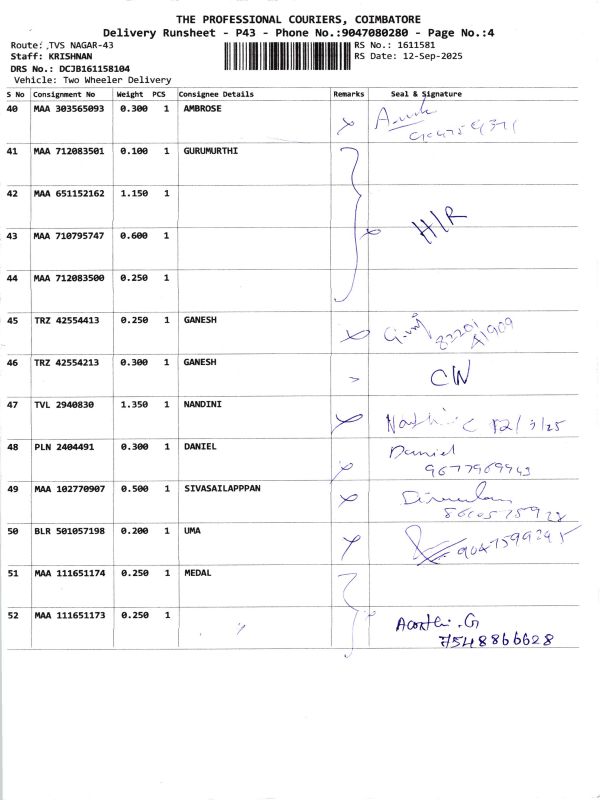 THE PROFESSIONAL COURIERS, COIMBATORE
Delivery Runsheet - P43 - Phone No.:9047080280 - Page No.:4
Route: ,TVS NAGAR-43 RS No.: 1611581
Staff: KRISHNAN RS Date: 12-Sep-2025
DRS No.: DCJB161158104
Vehicle: Two Wheeler Delivery
S No Consignment No Weight PCS Consignee Details Remarks Seal & Signature
40 MAA 303565093 0.300 1 AMBROSE
41 MAA 712083501 0.100 1 GURUMURTHI
42 MAA 651152162 1.150 1
43 MAA 710795747 0.600 1 HIR
44 MAA 712083500 0.250 1
45 TRZ 42554413 0.250 1 GANESH 82201 41909
46 TRZ 42554213 0.300 1 GANESH CW
47 TVL 2940830 1.350 1 NANDINI 12/9/25
48 PLN 2404491 0.300 1 DANIEL Daniel
9677969943
49 MAA 102770907 0.500 1 SIVASAILAPPPAN
50 BLR 501057198 0.200 1 UMA
51 MAA 111651174 0.250 1 MEDAL
52 MAA 111651173 0.250 1
7548866628